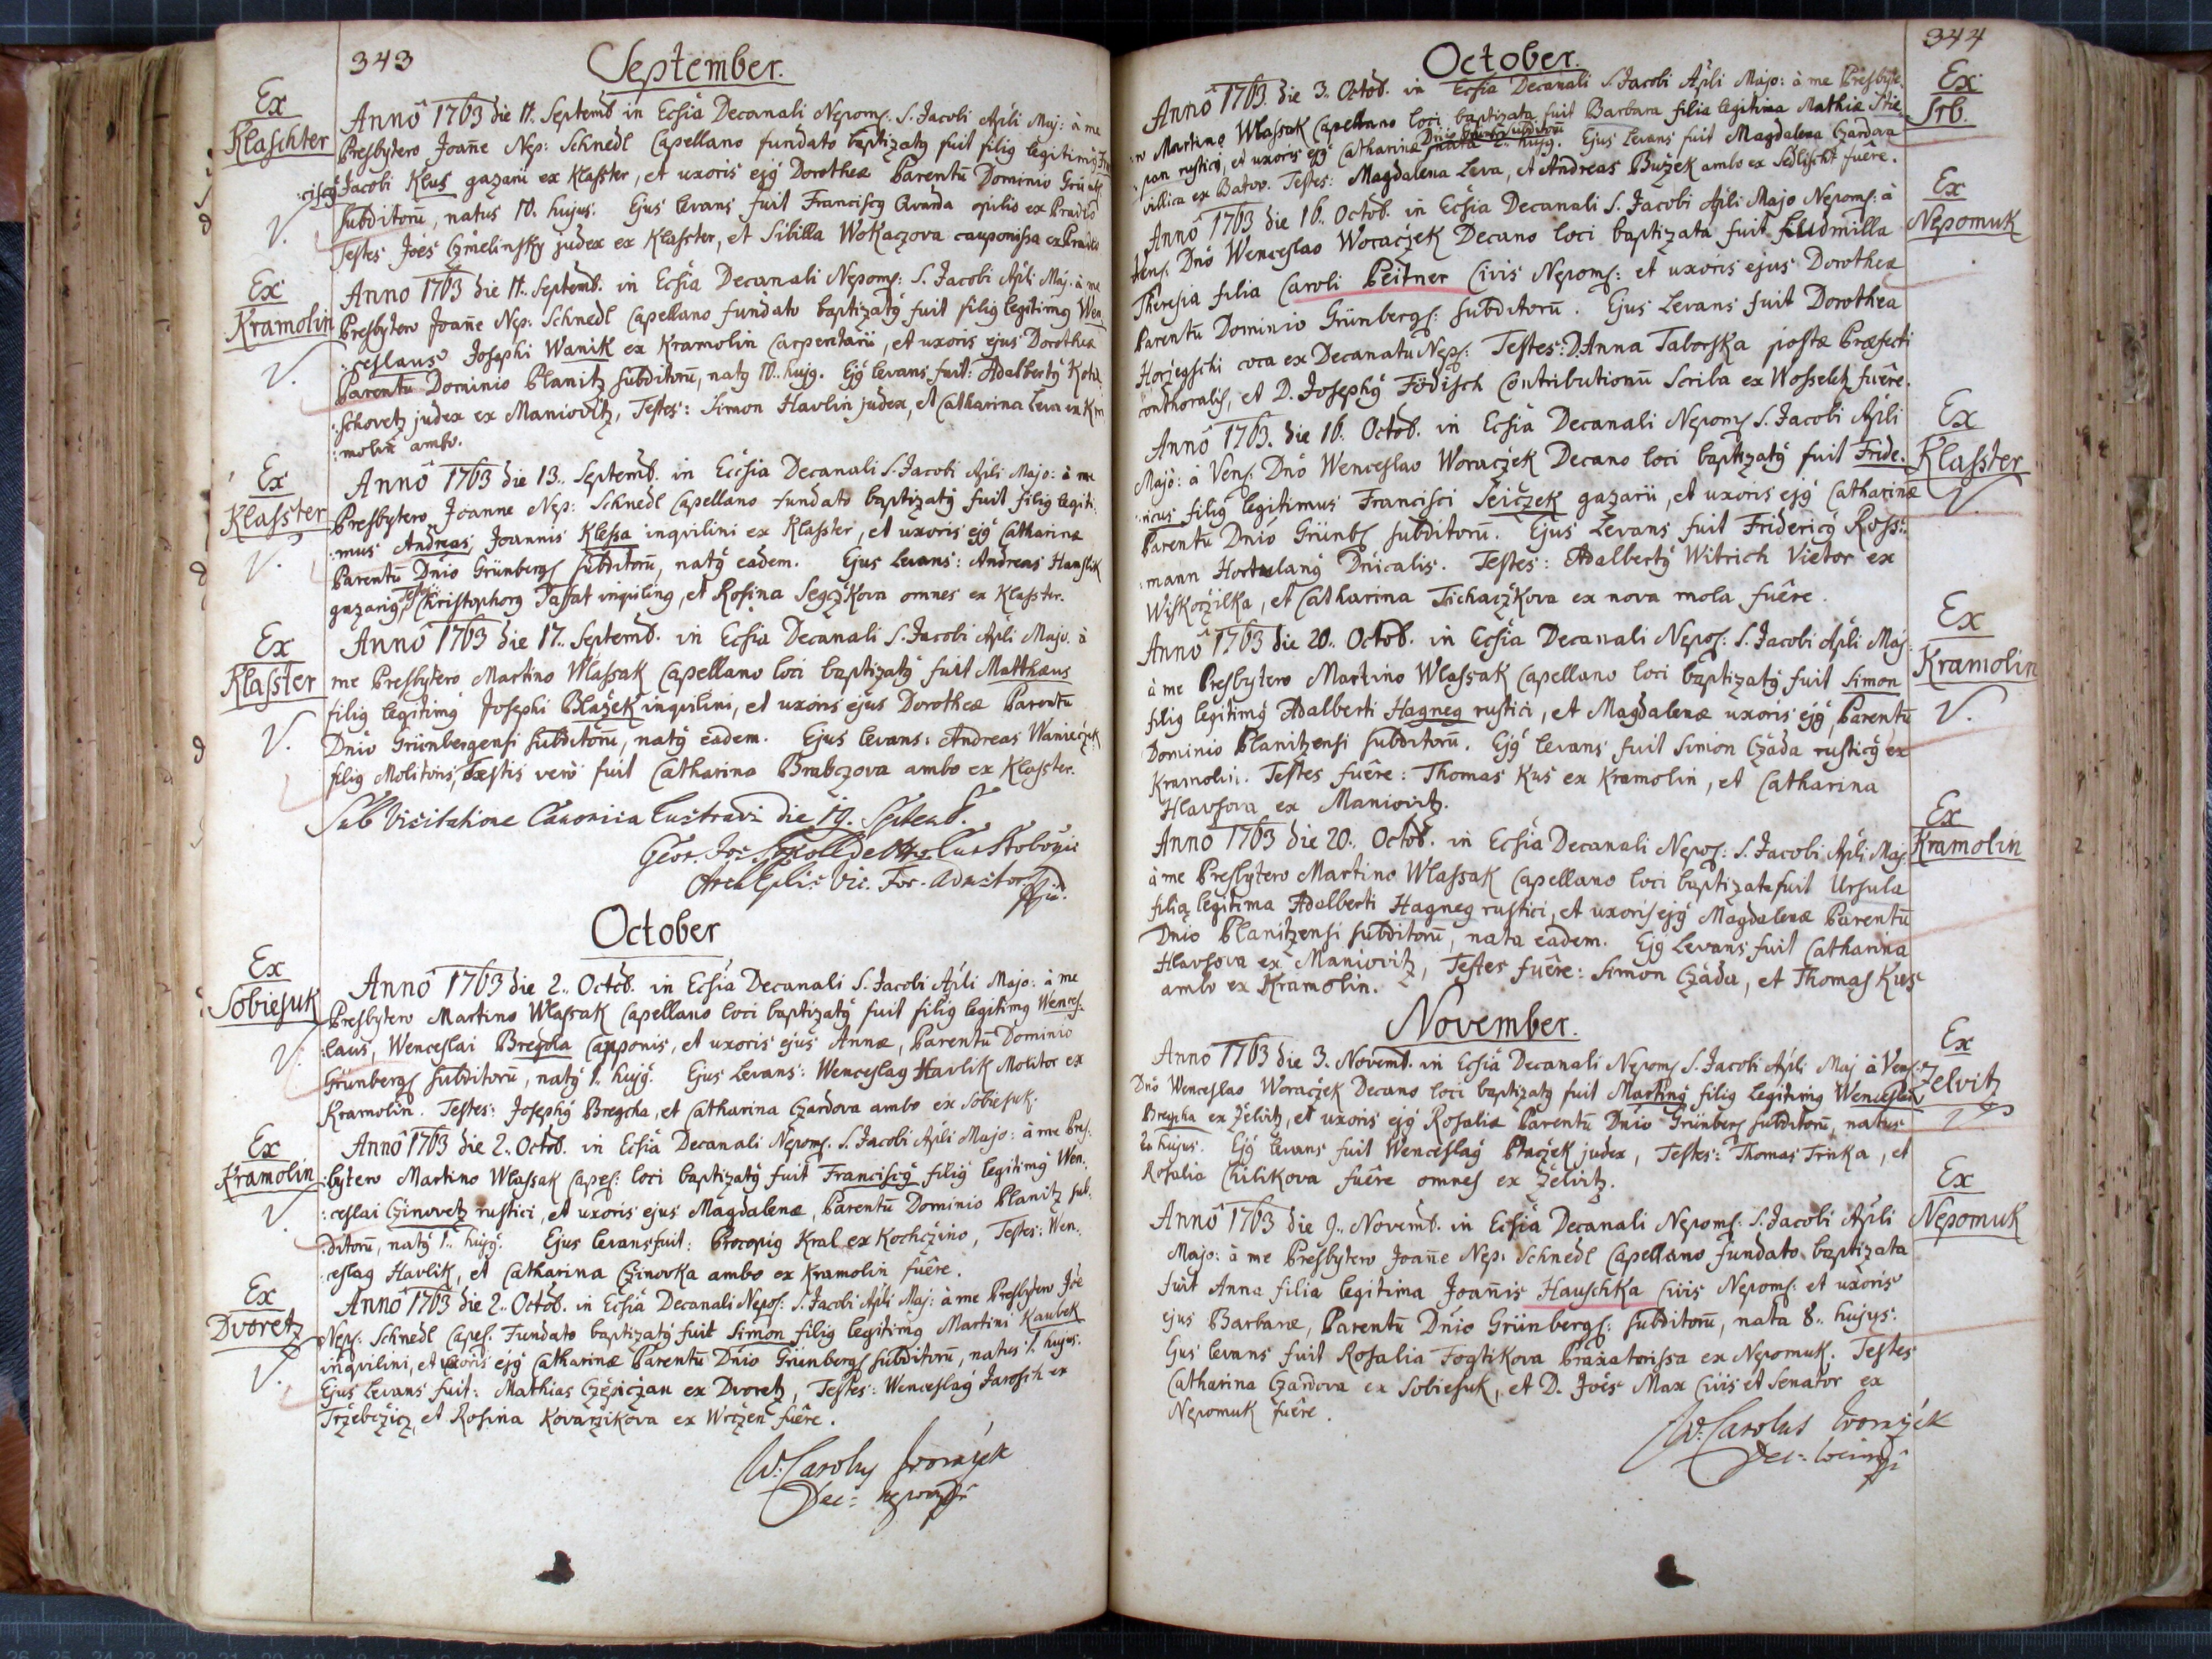 343
September.
Ex
Klaschter
Anno 1763 die 11. Septemb in Ecsia Decanali Nepom: S. Jacobi Apli Maj: à me
Presbytero Joañe Nep: Schnedl Capellano fundato baptizatq fuit filiq legitimq Fran
:ciscq Jacobi Klus gazarii ex Klasster, et uxoris ejq Dorotheæ Parentu Dominio Grünb
Subditoru, natus 10. hujus. Ejus levans fuit Franciscq Qvanda opilio ex Pradlo
Testes Joes Czmelinsky judex ex Klasster, et Sibilla Wokaczova cauponissa ex Pradlo
Ex
Kramolin
Anno 1763 die 11. Septemb. in Ecsia Decanali Nepom: S. Jacobi Apli Maj. à me
Presbytero Joañe Nep: Schnedl Capellano fundato baptizatq fuit filiq legitimq Wen
:ceslaus Josephi Wanik ex Kramolin Carpentarii, et uxoris ejus Dorotheæ
Parentu Dominio Planitz subditoru, natq 10. hujq. Ejq levans fuit: Adalbertq Koto
:schovetz judex ex Maniovitz, Testes: Simon Havlin judex, et Catharina Leva ex Kra
:molin ambo.
Ex
Klasster
Anno 1763 die 13. Septemb. in Ecclsia Decanali S. Jacobi Apli Majo: à me
Presbytero Joanne Nep: Schnedl Capellano fundato baptizatq fuit filiq legiti:
:mus Andreas, Joannis Klessa inqvilini ex Klasster, et uxoris ejq Catharinæ
Parentu Dnio Grünberg subditoru, natq eadem. Ejus levans: Andreas Hanslik
gazariq, Testes Christophorq Taffat inqvilinq, et Rosina Segczkova omnes ex Klasster.
Ex
Klasster
Anno 1763 die 17. Septemb. in Ecsia Decanali S. Jacobi Apli Majo. à
me Presbytero Martino Wlassak Capellano loci baptizatq fuit Matthæus
filiq legitimq Josephi Blažek inqvilini, et uxoris ejus Dorotheæ Parentu
Dnio Grünbergensi subditoru, natq eadem. Ejus levans: Andreas Wanieczek
filiq Molitoris, Testis vero fuit Catharina Brabczova ambo ex Klasster.
Sub Visitatione Canonica Lustravi die 19. Septemb.
October
Ex
Sobiesuk
Anno 1763 die 2. Octob. in Ecsia Decanali S. Jacobi Apli Majo: à me
Presbytero Martino Wlassak Capellano loci baptizatq fuit filiq legitimq Wences:
:laus, Wenceslai Bregcha Cauponis, et uxoris ejus Annæ, Parentu Dominio
Grünberg subditoru, natq 1. hujq. Ejus levans: Wenceslaq Havlik Molitor ex
Kramolin. Testes: Josephq Bregcha, et Catharina Czardova ambo ex Sobiesuk.
Ex
Kramolin
Anno 1763 die 2. Octob. in Ecsia Decanali Nepom. S. Jacobi Apli Majo: à me Pres:
:bytero Martino Wlassak Capel: loci baptizatq fuit Franciscq filiq legitimq Wen:
:ceslai Czinovetz rustici, et uxoris ejus Magdalenæ, Parentu Dominio Planitz sub:
:ditoru, natq 1. hujq. Ejus levans fuit: Procopiq Kral ex Kochczino, Testes: Wen:
:ceslaq Havlik, et Catharina Czinovka ambo ex Kramolin fuêre.
Ex
Dvoretz
Anno 1763 die 2. Octob. in Ecsia Decanali Nepo: S. Jacobi Apli Maj: à me Presbytero Joe
Nep: Schnedl Capel. Fundato baptizatq fuit Simon filiq legitimq Martini Kaubek
inqvilini, et uxoris ejq Catharinæ Parentu Dnio Grünberg subditoru, natus 1. hujus.
Ejus levans fuit: Mathias Czepiczan ex Dvoretz, Testes: Wenceslaq Jarosch ex
Trzebczicz, et Rosina Kovarzikova ex Wrczen fuêre.
W: Carolq Woraczek
344
October.
Ex
Srb.
Anno 1763. die 3. Octob. in Ecsia Decanali S. Jacobi Apli Majo: à me Presbyte
:ro Martino Wlassak Capellano loci baptizata fuit Barbara filia legitima Mathiæ Stie
:pan rustici, et uxoris ejq Catharinæ Dnio Grünb subditoru nata 2. hujq. Ejus levans fuit Magdalena Czardova
villica ex Batov. Testes: Magdalena Leva, et Andreas Bužek ambo ex Sedlischt fuêre.
Ex
Nepomuk
Anno 1763 die 16. Octob. in Ecsia Decanali S. Jacobi Apli Majo Nepom: à
Ven: Dno Wenceslao Woraczek Decano loci baptizata fuit Ludmilla
Theresia filia Caroli Peitner Civis Nepom: et uxoris ejus Dorotheæ
Parentu Dominio Grünberg: subditoru. Ejus levans fuit Dorothea
Horzegschi coca ex Decanatu Nep: Testes: D. Anna Taborska postæ Præfecti
conthoralis, et D. Josephq Födisch Contributionu Scriba ex Wosseletz fuêre.
Ex
Klasster
Anno 1763. die 16. Octob. in Ecsia Decanali Nepom S. Jacobi Apli
Majo: à Ven. Dno Wenceslao Woraczek Decano loci baptizatq fuit Fride:
:ricus filiq legitimus Francisci Seiczek gazarii, et uxoris ejq Catharinæ
Parentu Dnio Grünb subditoru. Ejus Levans fuit Fridericq Ross:
:mann Hortulanq Dnicalis. Testes: Adalbertq Witrich Vietor ex
Wiskoczilka, et Catharina Tichaczkova ex nova mola fuêre.
Ex
Kramolin
Anno 1763 die 20. Octob. in Ecsia Decanali Nepo: S. Jacobi Apli Maj:
à me Presbytero Martino Wlassak Capellano loci baptizatq fuit Simon
filiq legitimq Adalberti Hagneg rustici, et Magdalenæ uxoris ejq, Parentu
Dominio Planitzensi subditoru. Ejq levans fuit Simon Czada rusticq ex
Kramolin. Testes fuêre: Thomas Kus ex Kramolin, et Catharina
Hlavsova ex Maniovitz.
Ex
Kramolin
Anno 1763 die 20. Octob. in Ecsia Decanali Nepo: S. Jacobi Apli Maj:
à me Presbytero Martino Wlassak Capellano loci baptizata fuit Ursula
filia legitima Adalberti Hagneg rustici, et uxoris ejq Magdalenæ Parentu
Dnio Planitzensi subditoru, nata eadem. Ejq Levans fuit Catharina
Hlavsova ex Maniovitz, Testes fuêre: Simon Czada, et Thomas Kus
ambo ex Kramolin.
November.
Ex
Zelvitz
Anno 1763 die 3. Novemb. in Ecsia Decanali Nepom S. Jacobi Apli Maj à Ven:
Dno Wenceslao Woraczek Decano loci baptizatq fuit Martinq filiq legitimq Wenceslai
Bregcha ex Želvitz, et uxoris ejq Rosaliæ Parentu Dnio Grünberg subditoru, natus
hujus. Ejq levans fuit Wenceslaq Ptaczek judex, Testes: Thomas Trnka, et
Rosalia Chilikova fuêre omnes ex Želvitz.
Ex
Nepomuk
Anno 1763 die 9. Novemb. in Ecsia Decanali Nepom: S. Jacobi Apli
Majo: à me Presbytero Joañe Nep: Schnedl Capellano fundato baptizata
fuit Anna filia legitima Joañis Hauschka Civis Nepom: et uxoris
ejus Barbaræ, Parentu Dnio Grünberg: subditoru, nata 8. hujus.
Ejus levans fuit Rosalia Fogtikova Braxatorissa ex Nepomuk. Testes
Catharina Czardova ex Sobiesuk, et D. Joes Max Civis et Senator ex
Nepomuk fuêre.
W: Carolus Woraczek